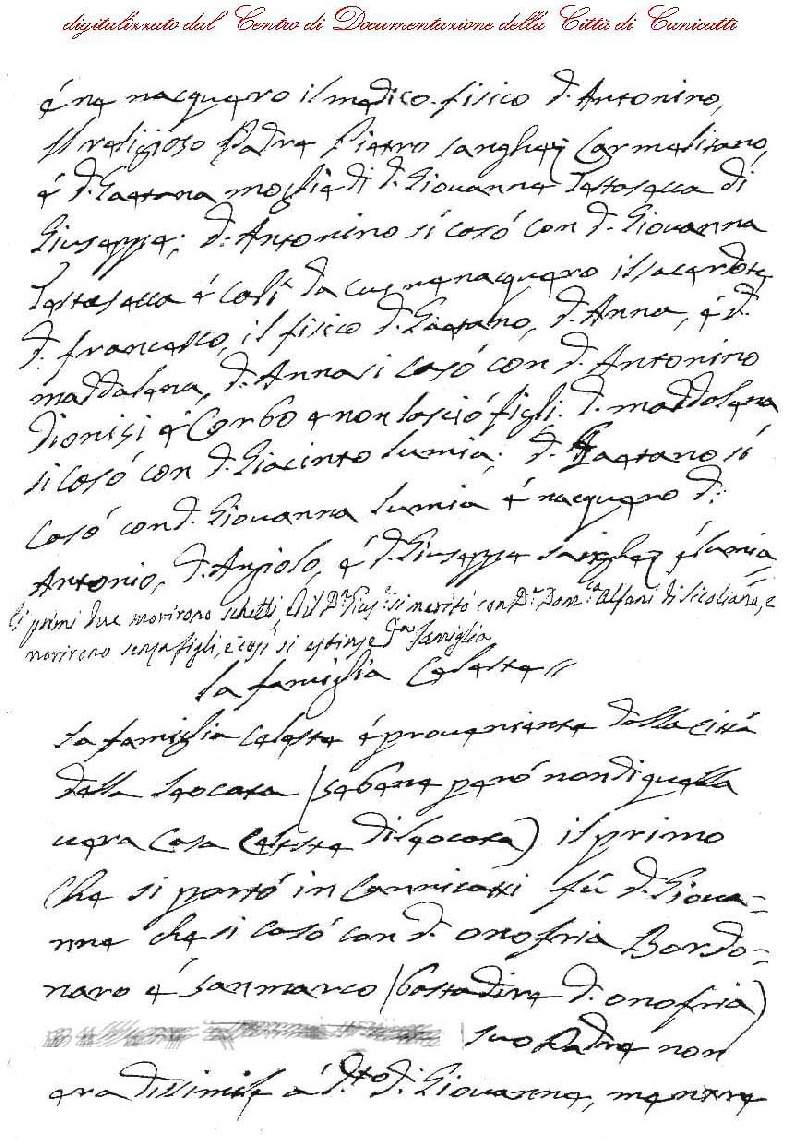 digitalizzato dal Centro di Documentazione della Città di Canicattì
é ne nacquero il medico fisico d. Antonino,
il religioso Padre Pietro sanghez Carmelitano,
é d. Gaetana moglie di d. Giouanne Testasecca di
Giuseppe; d. Antonino si casó con d. Giouanna
Testasecca é Calì da cui ne nacquero il sacerdote
d. francesco, il fisico d. Gaetano, d. Anna, é d.
maddalena, d. Anna si casó con d. Antonino
Dionisi é Corbo e non lasció figli: d. maddalena
si casó con d. Giacinto lumia; d. Gaetano si
casó con d. Giouanna lumia é nacquero d:
Antonio, d. Angiolo, é d. Giuseppe sanghez é lumia,
li primi due morirono schetti, ed il Dr. Gius.e si maritò con Da. Dom.ca Alfani di Siculiana, e
morirono senza figli, e così si estinse da. famiglia
la famiglia Celeste //
la famiglia Celeste é proueniente dalla città
della leocata (sebene peró non di quella
uera Casa Celeste di leocata) il primo
che si portó in Cannicatti fù d. Gioua=
nne che si casó con d. onofria Bordo=
naro é sanmarco (basta dire d. onofria)
suo Padre non
era dissimile á d.to d. Giouanne, mentre